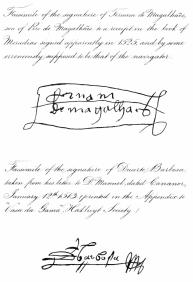 Facsimile of the signature of Fernam de Magalhães,
son of Pero de Magalhães to a receipt in the book of
Moradias signed apparently in 1525, and by some
erroneously supposed to be that of the navigator.
Fernam
De magalhães
Facsimile of the signature of Duarte Barbosa
taken from his letter to D. Manuel, dated Cananor,
January 12th 1513 printed in the Appendix to
Vasco da Gama Hakluyt Society